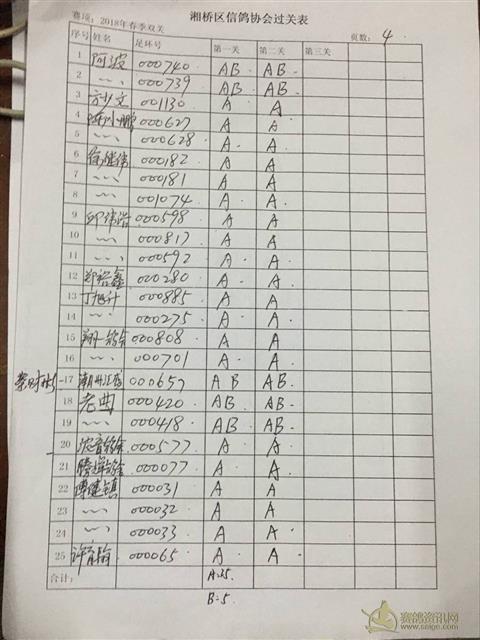 湘桥区信鸽协会过关表
赛项：2018年春季双关 页数：4
序号 姓名 足环号 第一关 第二关 第三关
1 阿波 000740 AB AB
2 〃 000739 AB AB
3 方少文 001130 A A
4 陈小鹏 000627 A A
5 〃 000628 A A
6 000182 A A
7 〃 000181 A A
8 〃 001074 A A
9 邱伟浩 000598 A A
10 〃 000817 A A
11 〃 000592 A A
12 郑裕鑫 000280 A A
13 丁旭升 000885 A A
14 〃 000275 A A
15 翔 鸽舍 000808 A A
16 〃 000701 A A
17 潮州 000657 AB AB
18 老曲 000420 AB AB
19 〃 000418 AB AB
20 鸽舍 000577 A A
21 腾辉鸽舍 000077 A A
22 000031 A A
23 〃 000032 A A
24 〃 000033 A A
25 许 000065 A A
合计： A=25.
B=5.
赛鸽资讯网
www.saige.com